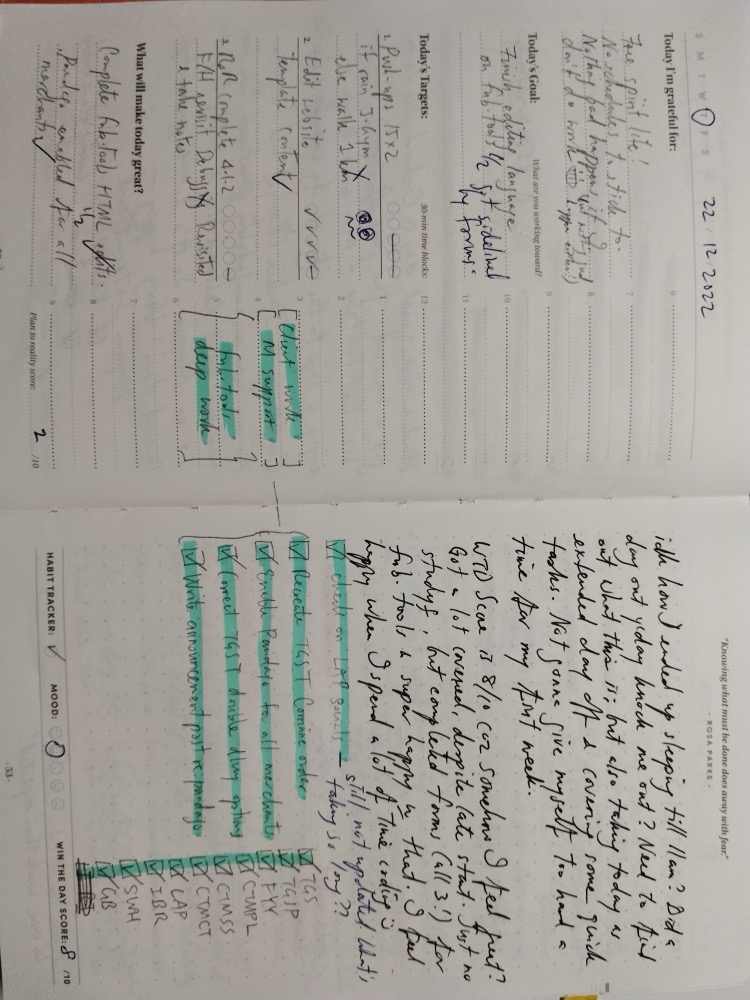 S M T W T F S
22 / 12 2022
Today I'm grateful for:
Free spirit life!
No schedules to stick to.
Nothing bad happens if I
don't do work
Today's Goal:
What are you working toward?
Finish editing language
on fab.tools 1/2 got sidelined
by forms.
Today's Targets:
30-min time blocks:
1. Push ups 15x2
if rain J. Gym X
else walk 1 km ~
2. Edit website
template content ✓
3. complete 4.1.2
revisit Debugg Revisited
& take notes
What will make today great?
Complete fab.tools HTML edits.
1/2
Pandago enabled for all
merchants ✓
6
7
8
9
10
11
12
1
2
3
4
5
6
7
8
9
Client work
M support
fab.tools
deep work
Plan to reality score:
2 /10
"Knowing what must be done does away with fear."
- ROSA PARKS -
idk how I ended up sleeping till 11am? Did a
day out y'day knock me out? Need to find
out what this is, but also taking today as
extended day off & covering some quick
tasks. Not gonna give myself too hard a
time for my first week.
WTD Score is 8/10 coz somehow I feel great?
Got a lot covered, despite late start. Just no
studying, but completed forms (all 3!) for
fab.tools & super happy w that. I feel
happy when I spend a lot of time coding
☑ Check on LAP emails – still not updated. What's
taking so long??
☑ Recreate TGST Corinne order
☑ Enable Pandago for all merchants
☑ Correct TGST double dlvry options
☑ Write announcement post re pandago
☑ TGS
☑ TGJP
☑ FYY
☑ CTMPL
☑ CTMSS
☑ CTMCT
☑ LAP
☑ IBR
☑ SWH
☑ GB
HABIT TRACKER: ✓
MOOD:
WIN THE DAY SCORE: 8 /10
- 53 -